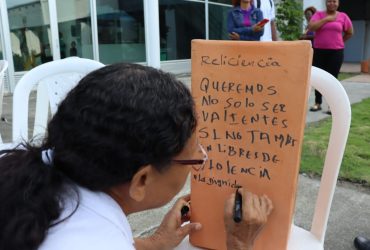 Reliciencia
QUEREMOS
No solo ser
VALIENTES
SINO TAMBI
LIBRES DE
VIOLENCIA